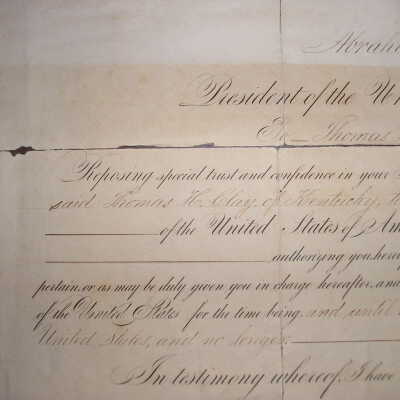 Abrah
President of the Un
To Thomas
Reposing special trust and confidence in your
said Thomas H. Clay, of Kentucky, to
of the United States of Am
authorizing you, here
pertain, or as may be duly given you in charge hereafter, and
of the United States for the time being, and until
United States, and no longer.
In testimony whereof, I have